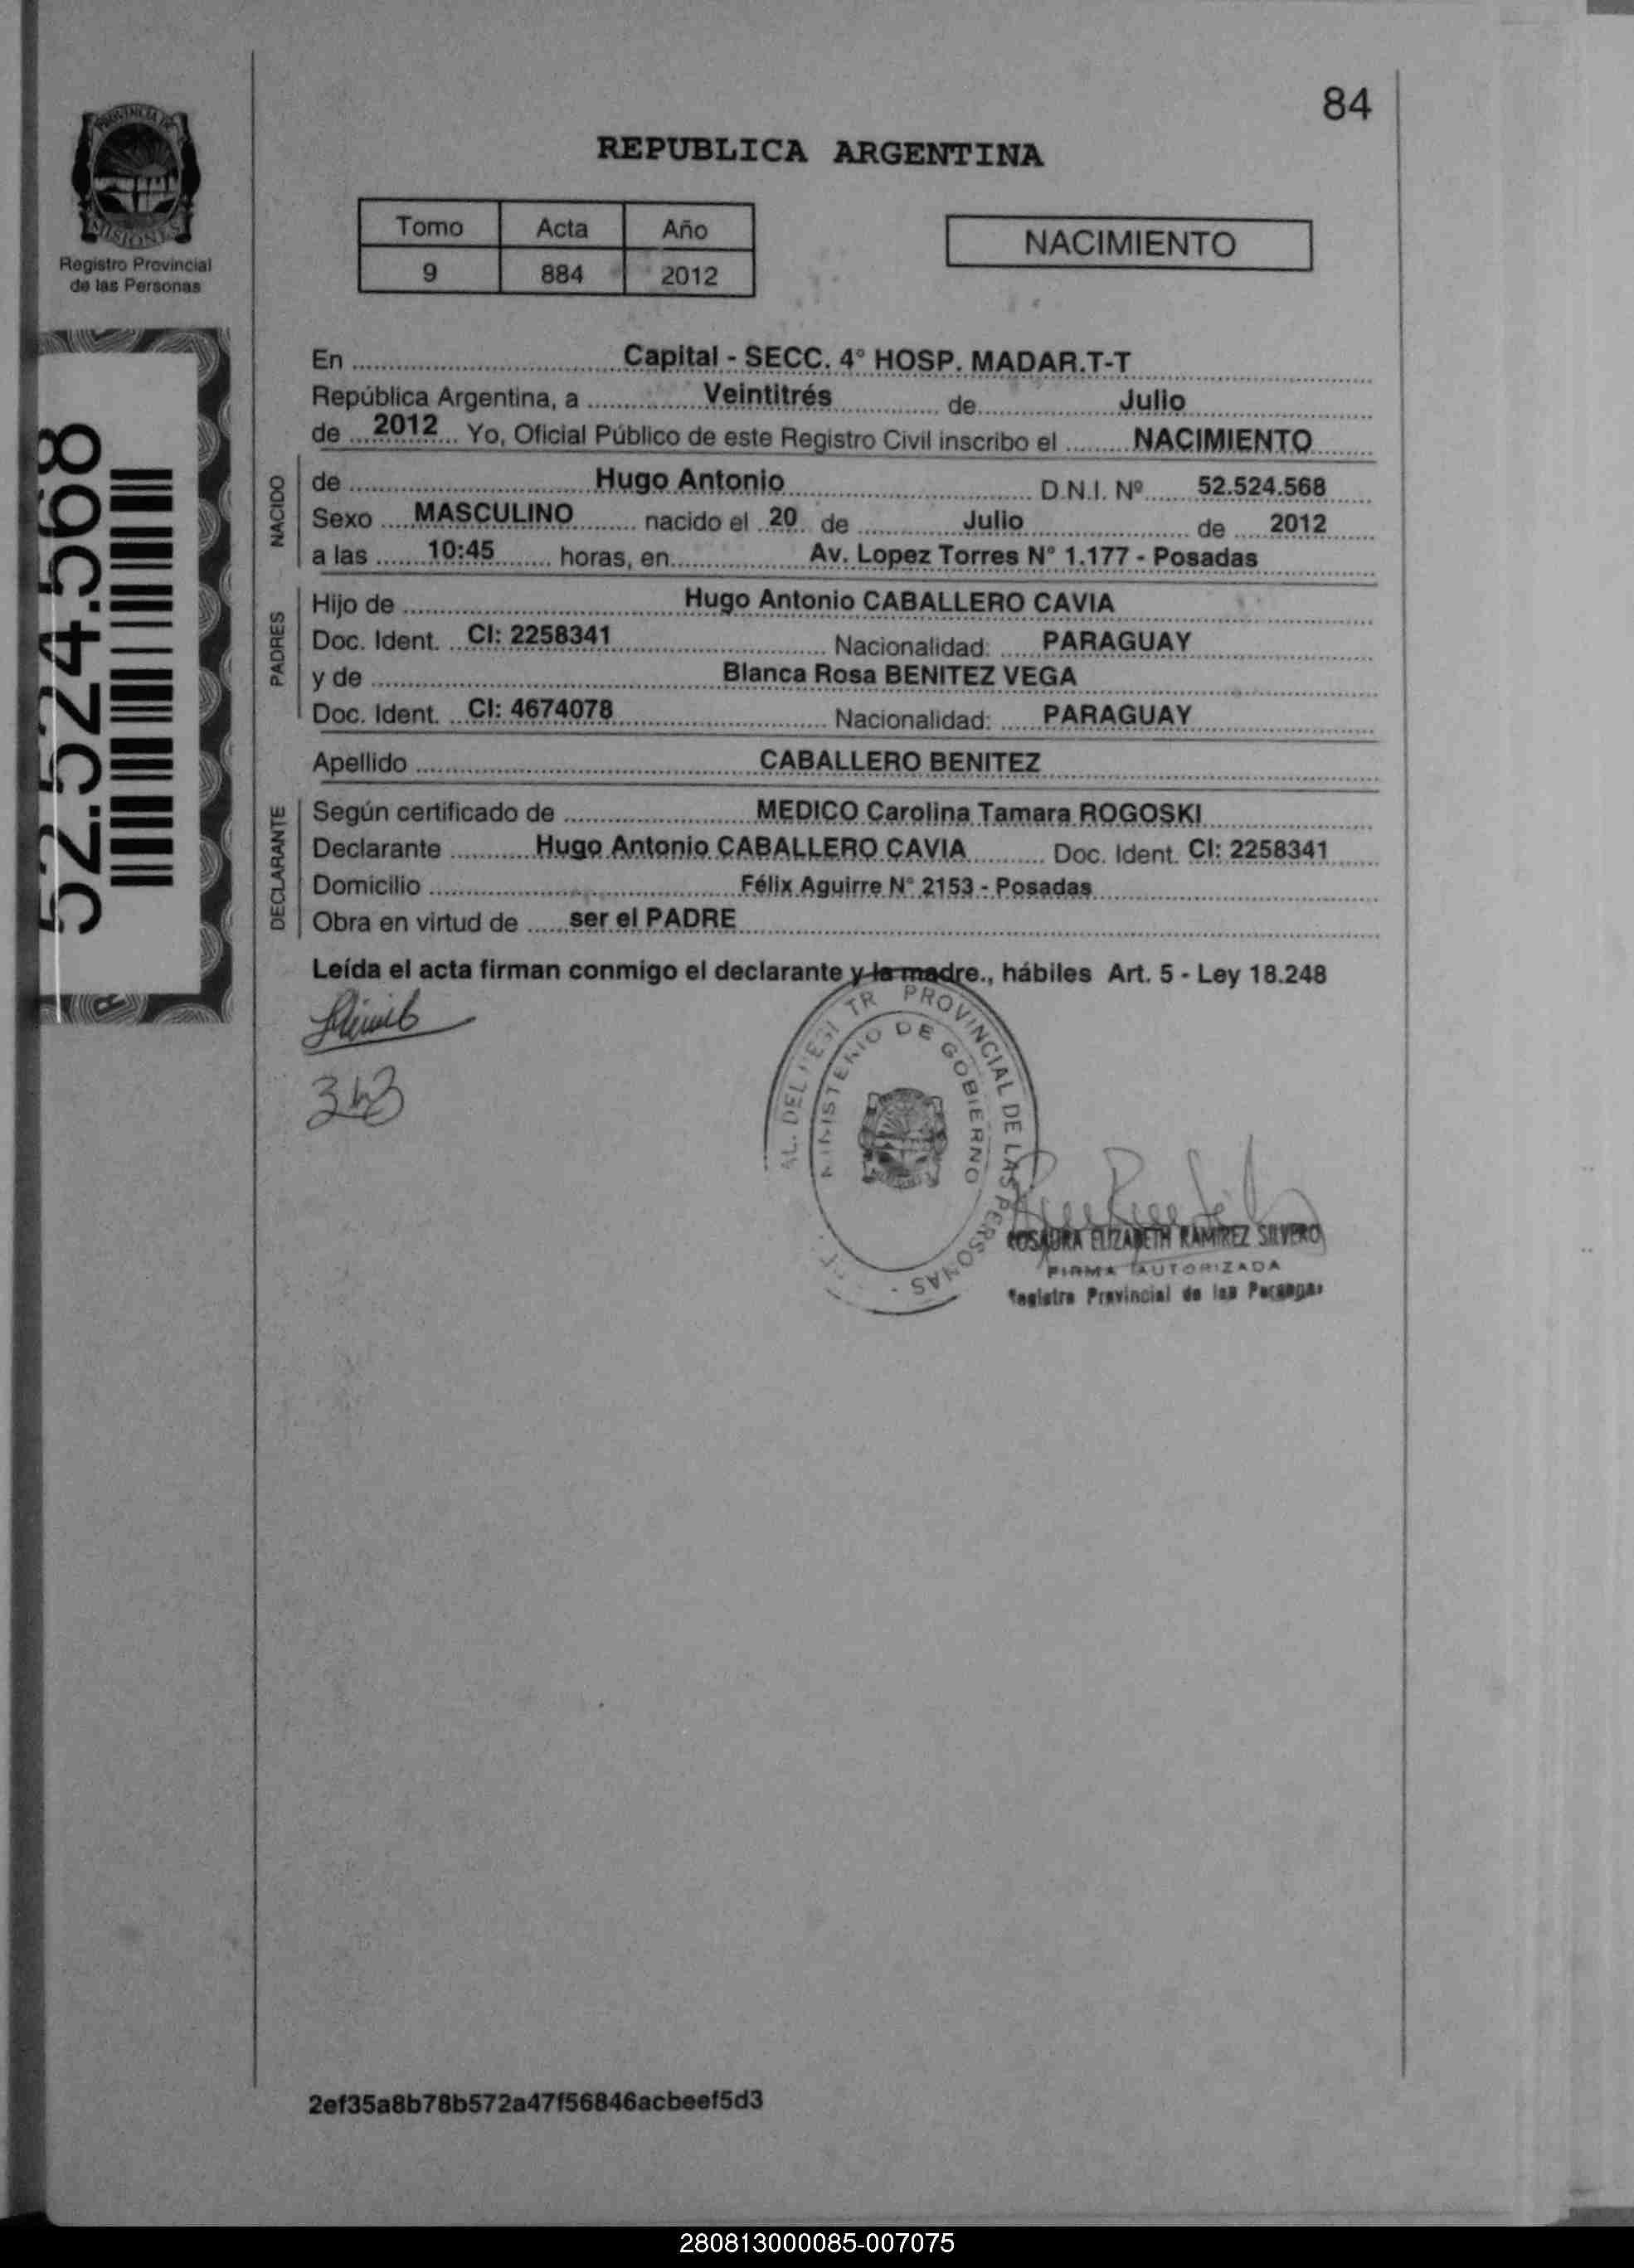 84
REPUBLICA ARGENTINA
PROVINCIA DE
MISIONES
Registro Provincial
de las Personas
Tomo Acta Año
9 884 2012
NACIMIENTO
52.524.568
En Capital - SECC. 4° HOSP. MADAR.T-T
República Argentina, a Veintitrés de Julio
de 2012 Yo, Oficial Público de este Registro Civil inscribo el NACIMIENTO
NACIDO
de Hugo Antonio D.N.I. Nº 52.524.568
Sexo MASCULINO nacido el 20 de Julio de 2012
a las 10:45 horas, en Av. Lopez Torres N° 1.177 - Posadas
PADRES
Hijo de Hugo Antonio CABALLERO CAVIA
Doc. Ident. CI: 2258341 Nacionalidad: PARAGUAY
y de Blanca Rosa BENITEZ VEGA
Doc. Ident. CI: 4674078 Nacionalidad: PARAGUAY
Apellido CABALLERO BENITEZ
DECLARANTE
Según certificado de MEDICO Carolina Tamara ROGOSKI
Declarante Hugo Antonio CABALLERO CAVIA Doc. Ident. CI: 2258341
Domicilio Félix Aguirre N° 2153 - Posadas
Obra en virtud de ser el PADRE
Leída el acta firman conmigo el declarante y la madre., hábiles Art. 5 - Ley 18.248
PROVINCIAL DE LAS PERSONAS
MINISTERIO DE GOBIERNO
ROSAURA ELIZABETH RAMIREZ SILVERO
FIRMA AUTORIZADA
Registro Provincial de las Personas
2ef35a8b78b572a47f56846acbeef5d3
280813000085-007075